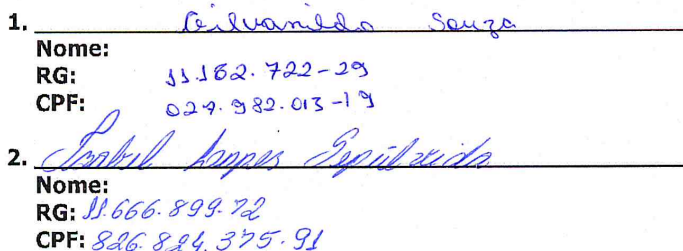 1. Gilvanildo Souza
Nome:
RG: 11.162.722-29
CPF: 027.982.013-19
2. Izabel Lopes Sepúlveida
Nome:
RG: 11.666.899.72
CPF: 826.824.375.91